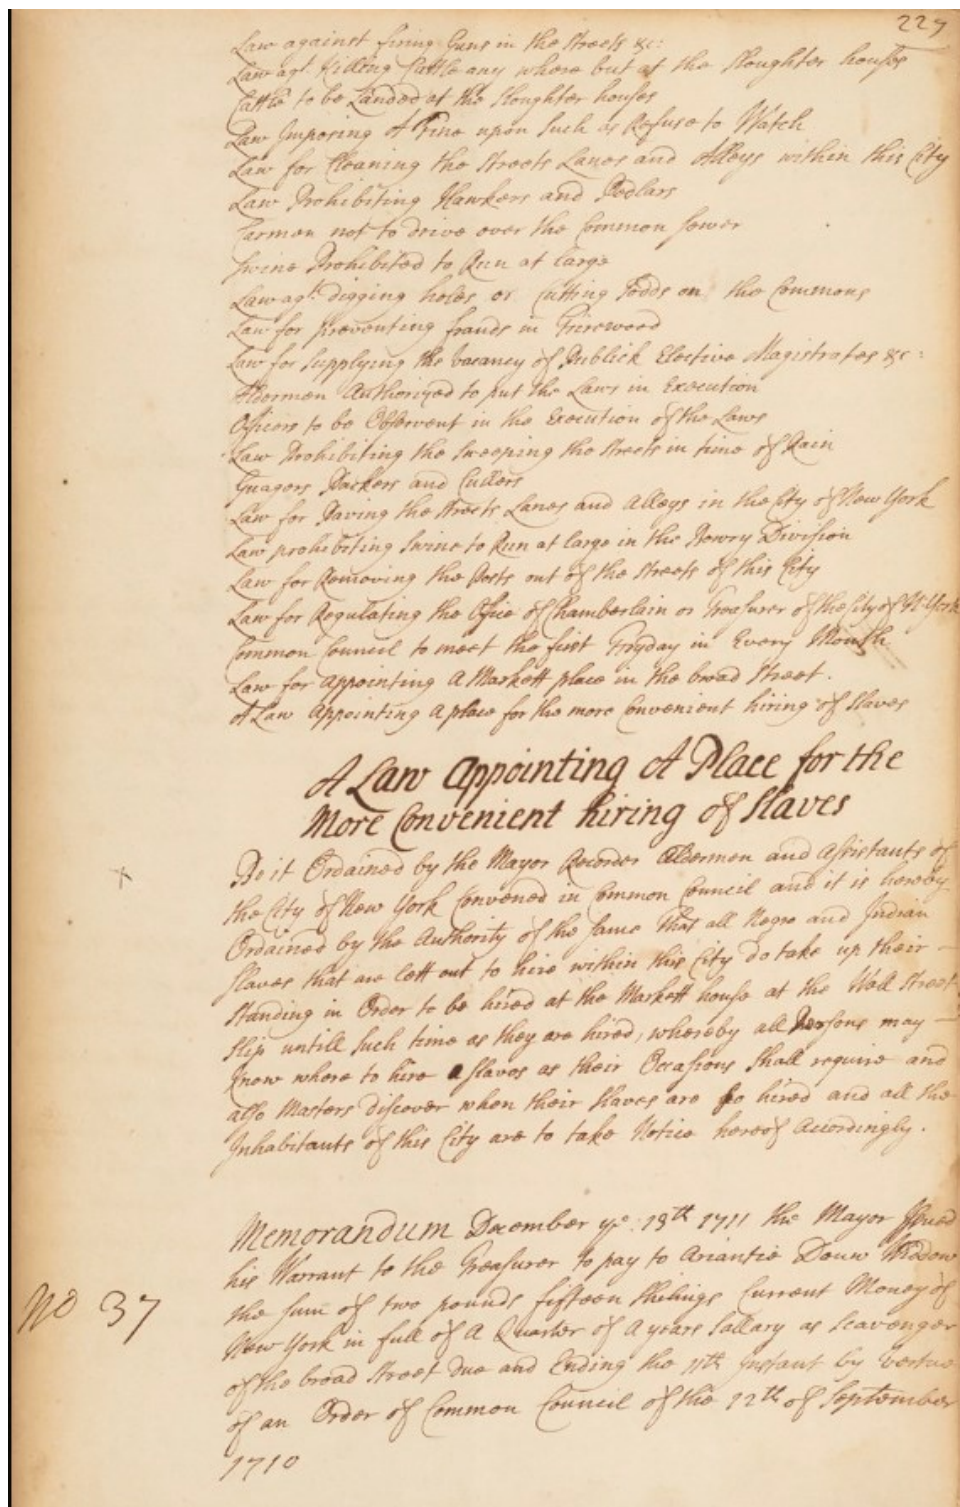 227
Law against firing Guns in the Streets &c:
Law agt. Killing Cattle any where but at the Sloughter houses
Cattle to be Landed at the Sloughter houses
Law Imposing A Fine upon Such as Refuse to Watch
Law for Cleaning the Streets Lanes and Alleys within this City
Law Prohibiting Hawkers and Pedlars
Carmen not to drive over the Common Sewer
Swine Prohibited to Run at large
Law agt. digging holes or Cutting Sodds on the Commons
Law for preventing frauds in Firewood
Law for Supplying the vacancy of Publick Elective Magistrates &c:
Aldermen Authorized to put the Laws in Execution
Officers to be Observent in the Execution of the Laws
Law Prohibiting the Sweeping the Streets in time of Rain
Guagers Packers and Cullers
Law for Paving the Streets Lanes and Alleys in the City of New York
Law prohibiting Swine to Run at large in the Bowry Division
Law for Removing the Posts out of the Streets of this City
Law for Regulating the Office of Chamberlain or Treasurer of the City of N: York
Common Council to meet the first Fryday in Every Month
Law for appointing A Markett place in the broad Street.
A Law Appointing A place for the more Convenient hiring of Slaves
A Law Appointing A Place for the
More Convenient hiring of Slaves
Be it Ordained by the Mayor Recorder Aldermen and Assistants of
the City of New York Convened in Common Council and it is hereby
Ordained by the Authority of the same That all Negro and Indian
slaves that are lett out to hire within this City do take up their
Standing in Order to be hired at the Markett house at the Wall Street
Slip untill Such time as they are hired, whereby all Persons may
know where to hire slaves as their Occasions Shall require and
also Masters discover when their Slaves are so hired and all the
Inhabitants of this City are to take Notice hereof Accordingly.
Memorandum December ye: 18th 1711 the Mayor Issued
No 37
his Warrant to the Treasurer to pay to Ariantie Douw Widdow
the sum of two pounds fifteen Shilings Current Money of
New York in full of A Quarter of A years Sallary as Scavenger
of the broad Street Due and Ending the 11th Instant by vertue
of an Order of Common Council of the 12th of September
1710